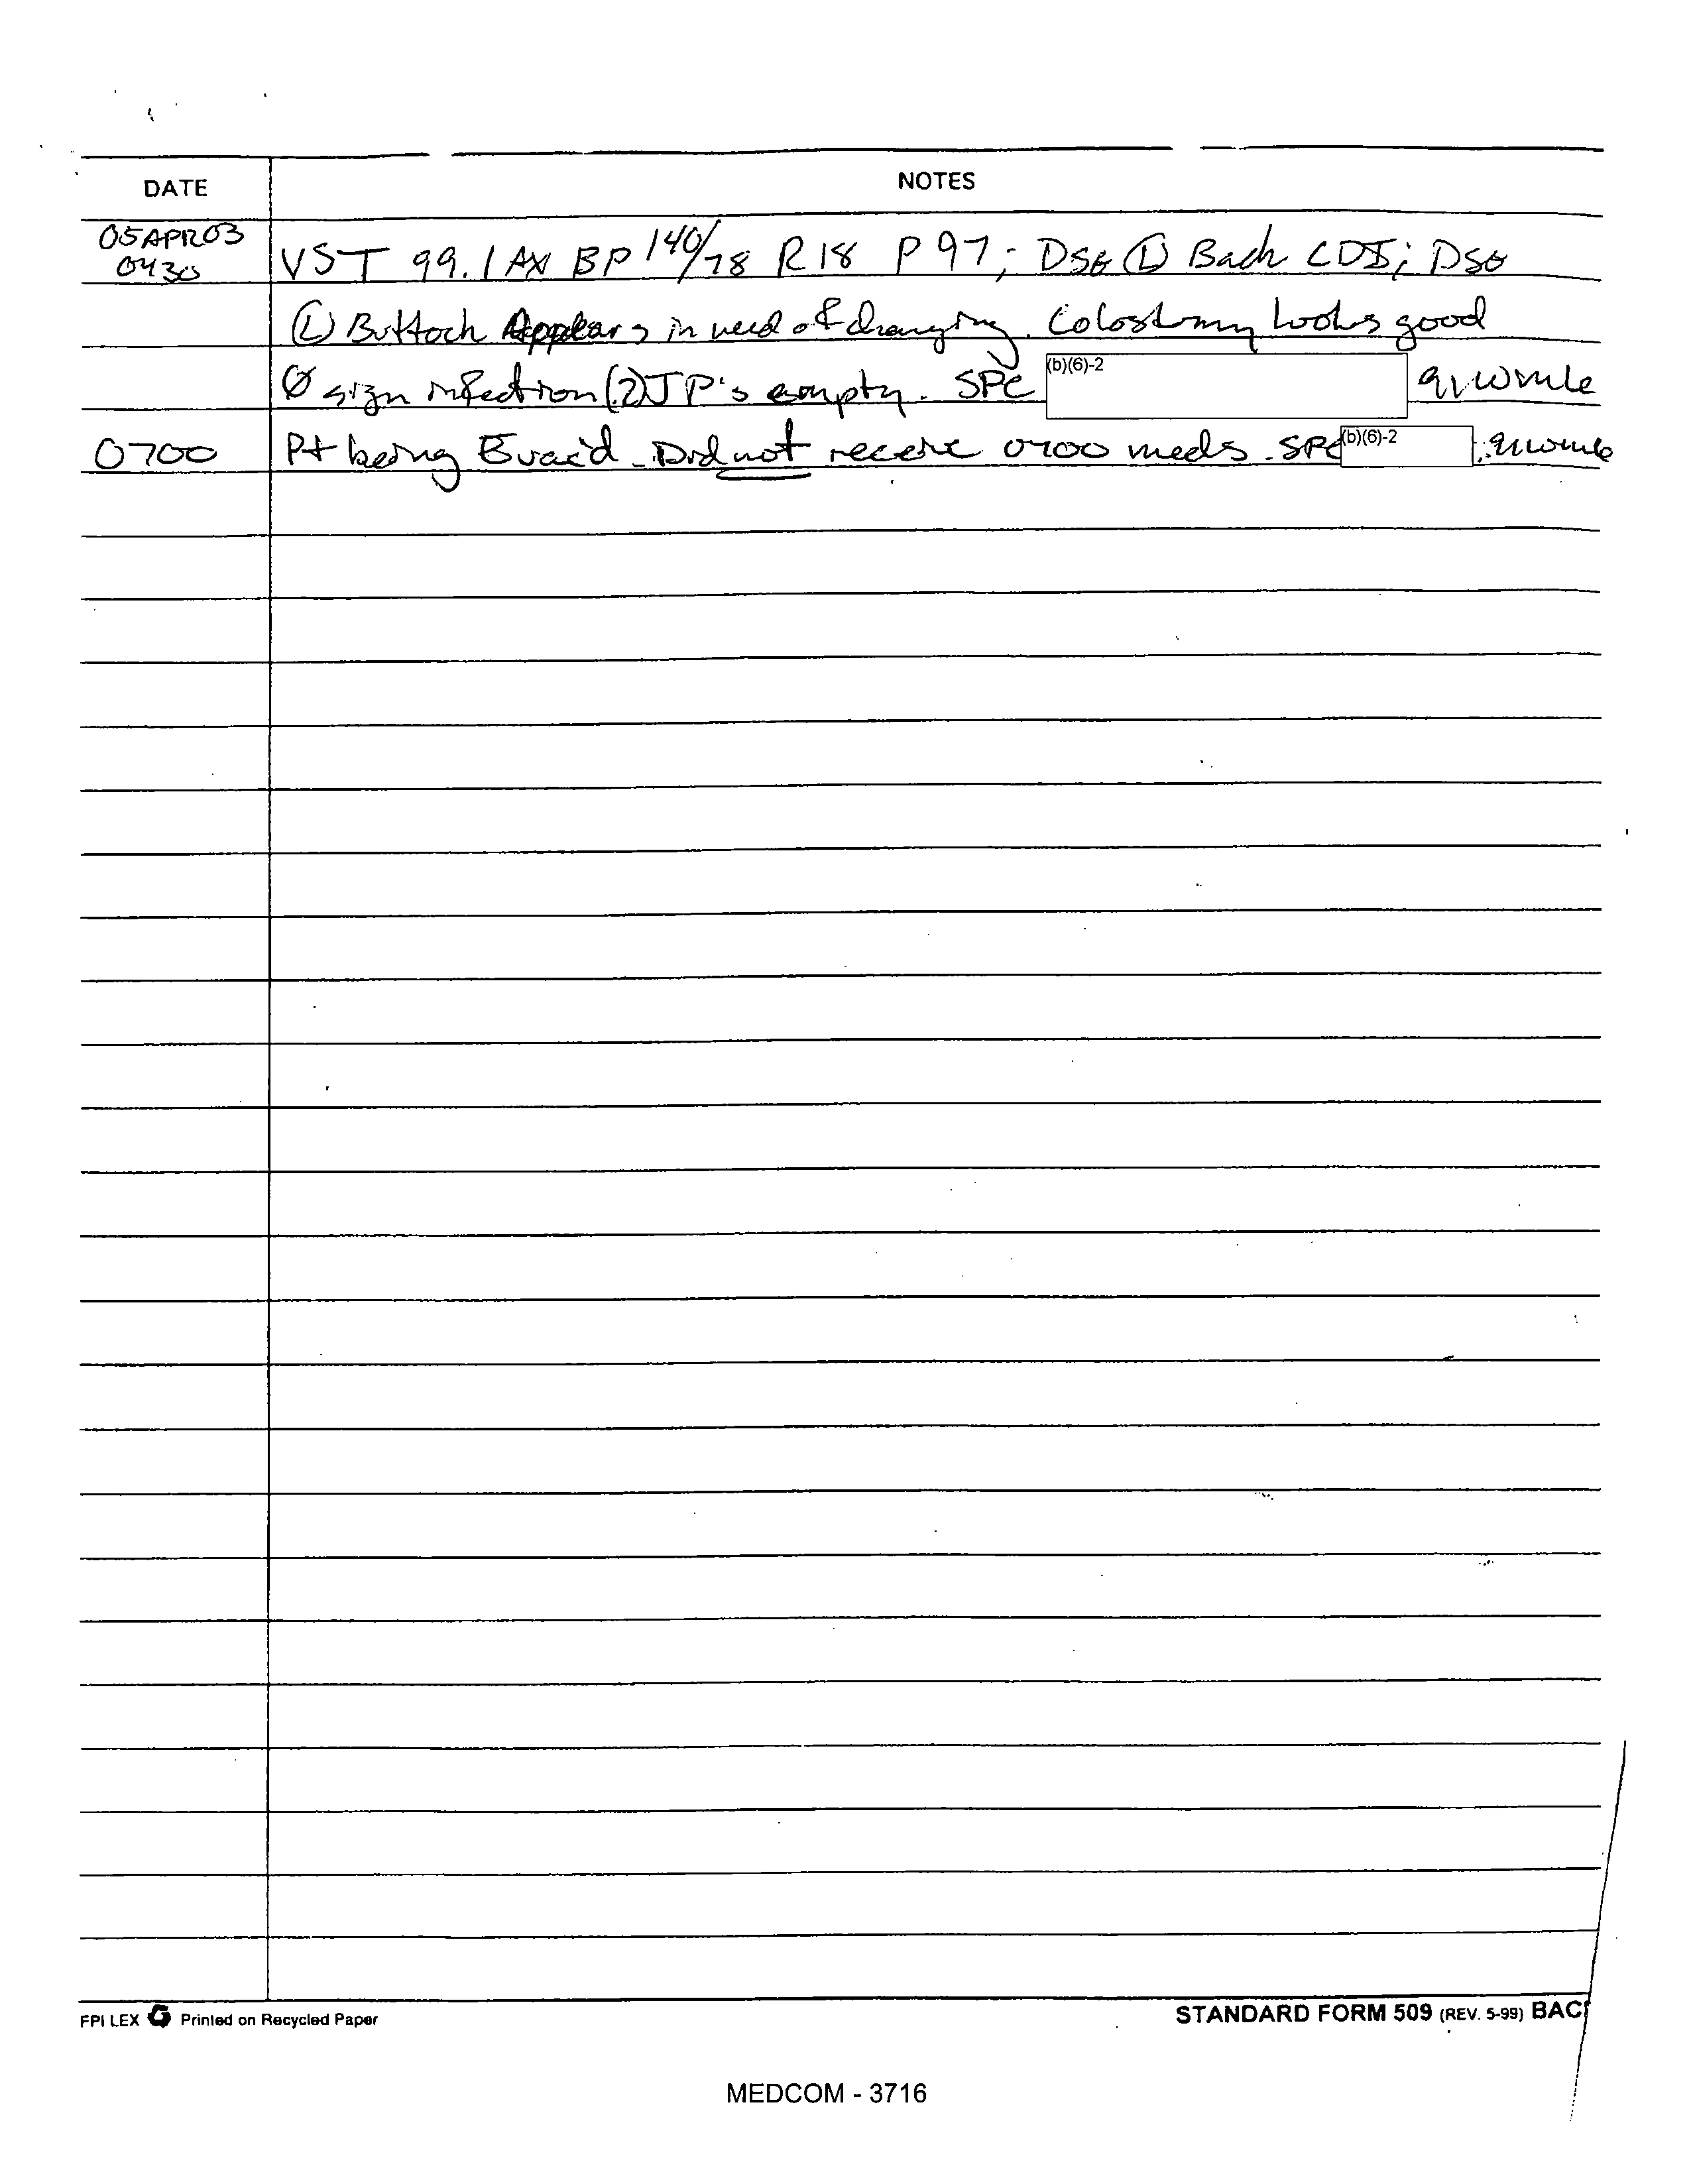 DATE NOTES
05APR03
0430
VST 99.1 AX BP 140/78 R18 P 97; DSG Ⓛ Back CDI; DSG
Ⓛ Buttock Appears in need of changing. Colostomy looks good
Ø sign infection (2) JP's empty. SPC (b)(6)-2 91WM6
0700 Pt being Evac'd. Did not receive 0700 meds. SPC (b)(6)-2 91WM6
FPI LEX Printed on Recycled Paper
STANDARD FORM 509 (REV. 5-99) BACK
MEDCOM - 3716